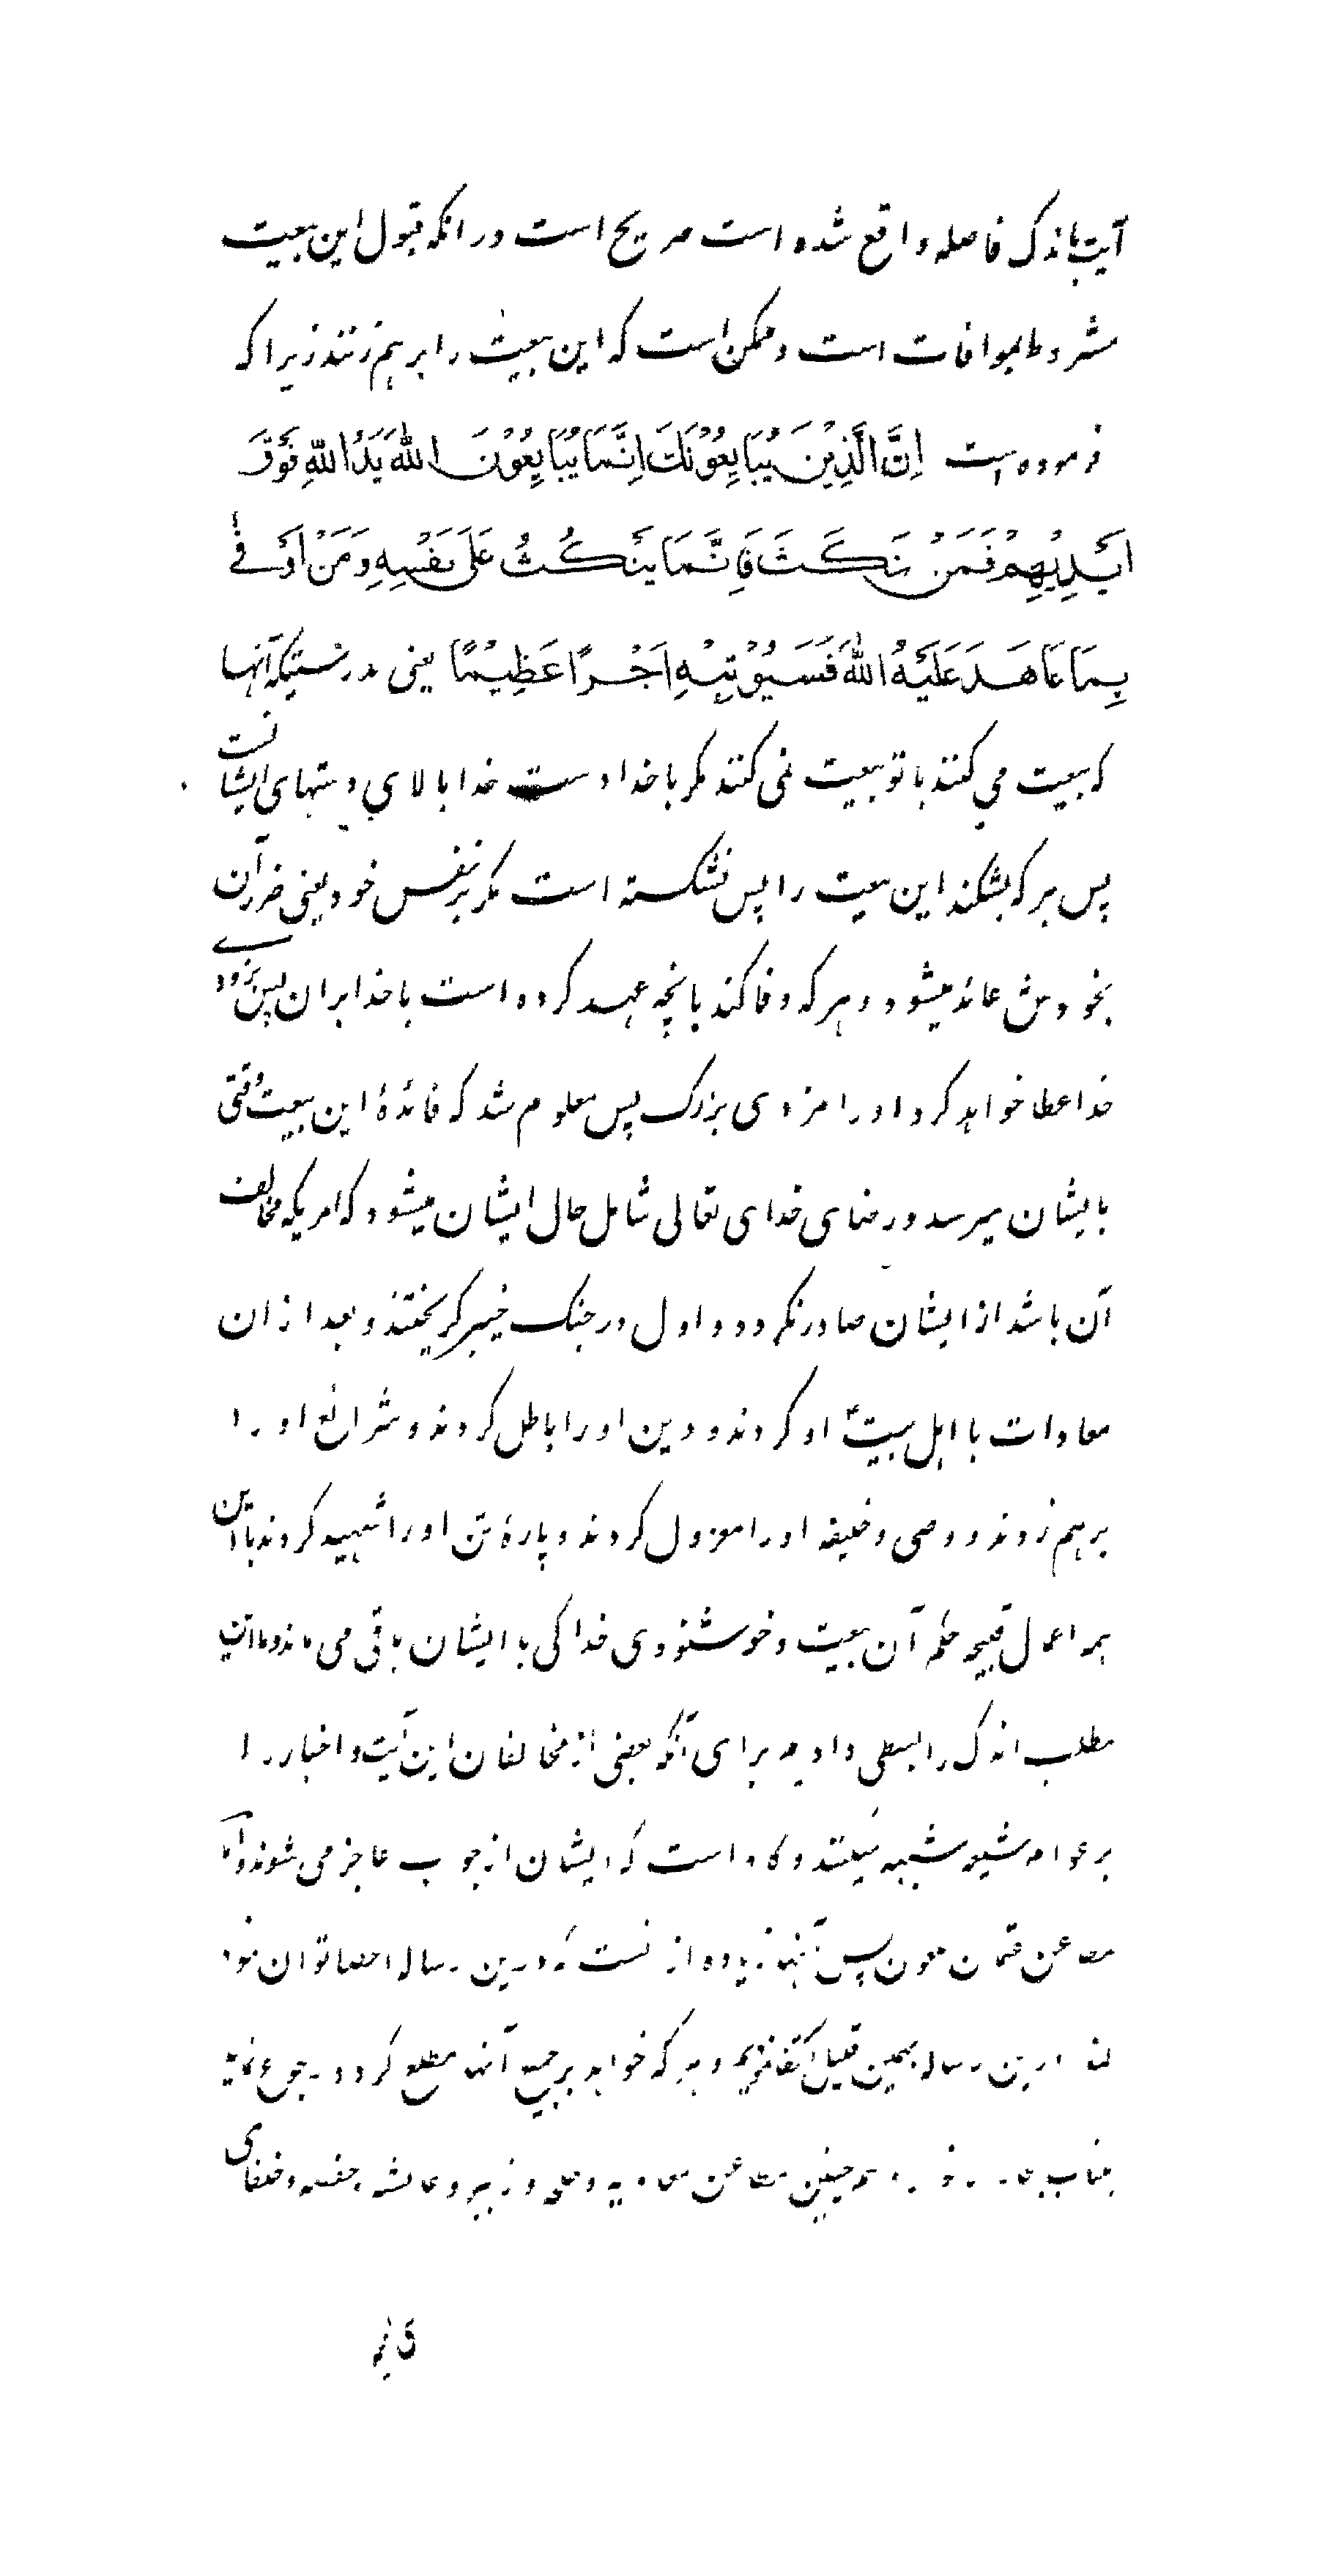 آیت باندک فاصله واقع شده است صریح است در انکه قبول این بیعت
مشروط بموافات است و ممکن است که این بیعت را برهم زنند زیرا که
فرموده است اِنَّ الَّذِیْنَ یُبَایِعُوْنَكَ اِنَّمَا یُبَایِعُوْنَ اللّٰهَ یَدُ اللّٰهِ فَوْقَ
اَیْدِیْهِمْ فَمَنْ نَكَثَ فَاِنَّمَا یَنْكُثُ عَلٰی نَفْسِهٖ وَمَنْ اَوْفٰی
بِمَا عَاهَدَ عَلَیْهُ اللّٰهَ فَسَیُؤْتِیْهِ اَجْرًا عَظِیْمًا یعنی بدرستیکه آنها
که بیعت می کنند با تو بیعت نمی کنند مکر با خدا دست خدا بالای دستهای ایشانست
پس هر که بشکند این بیعت را پس نشکسته است مکر بر نفس خود یعنی ضرر آن
بخودش عائد میشود و هر که وفا کند بانچه عهد کرده است با خدا بران پس بزودے
خدا عطا خواهد کرد او را مزدی بزرک پس معلوم شد که فائدهٔ این بیعت وقتی
بایشان میرسد و رضای خدای تعالی شامل حال ایشان میشود که امریکه مخالف
آن باشد از ایشان صادر نکردد و اول در جنک خیبر کریختند و بعد از ان
معادات با اهل بیتؑ او کردند و دین او را باطل کردند و شرائع او را
برهم زدند و وصی و خلیفه او را معزول کردند و پارهٔ تن او را شهید کردند با این
همه اعمال قبیحه حکم آن بیعت و خوشنودی خدا کی با ایشان باقی می ماند و ما این
مطلب اندک را بسطی دادیم برای آنکه بعضی از مخالفان این آیت و اخبار را
بر عوام شیعه شبهه میکنند و کاه است که ایشان از جواب عاجز می شوند و اما
مطاعن عثمان ملعون پس آنها زیاده از نست که درین رساله احصا توان نمود
لهذا درین رساله بهمین قلیل اکتفا نمودیم و هر که خواهد بر جمیع آنها مطلع کردد رجوع نماید
بکتاب بحار همچنین مطاعن معاویه و طلحه و زبیر و عائشه و حفصه و خلفای